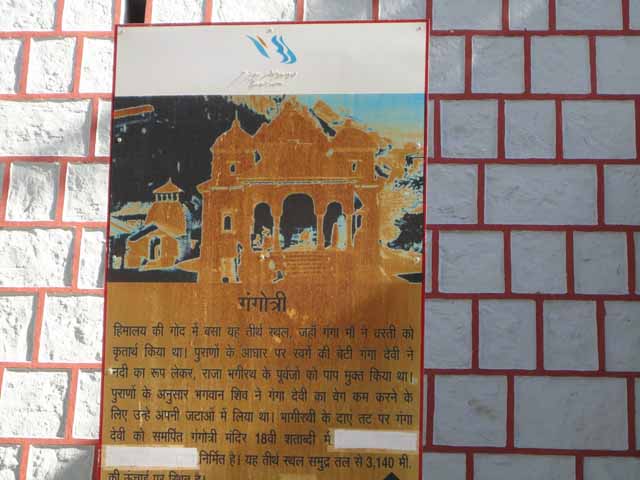 गंगोत्री
हिमालय की गोद में बसा यह तीर्थ स्थल, जहाँ गंगा माँ ने धरती को
कृतार्थ किया था। पुराणों के आधार पर स्वर्ग की बेटी गंगा देवी ने
नदी का रूप लेकर, राजा भगीरथ के पूर्वजो को पाप मुक्त किया था।
पुराणों के अनुसार भगवान शिव ने गंगा देवी का वेग कम करने के
लिए उन्हे अपनी जटाओं में लिया था। भागीरथी के दाए तट पर गंगा
देवी को समर्पित गंगोत्री मंदिर 18वी शताब्दी में
निर्मित है। यह तीर्थ स्थल समुद्र तल से 3,140 मी.
की ऊंचाई पर स्थित है।